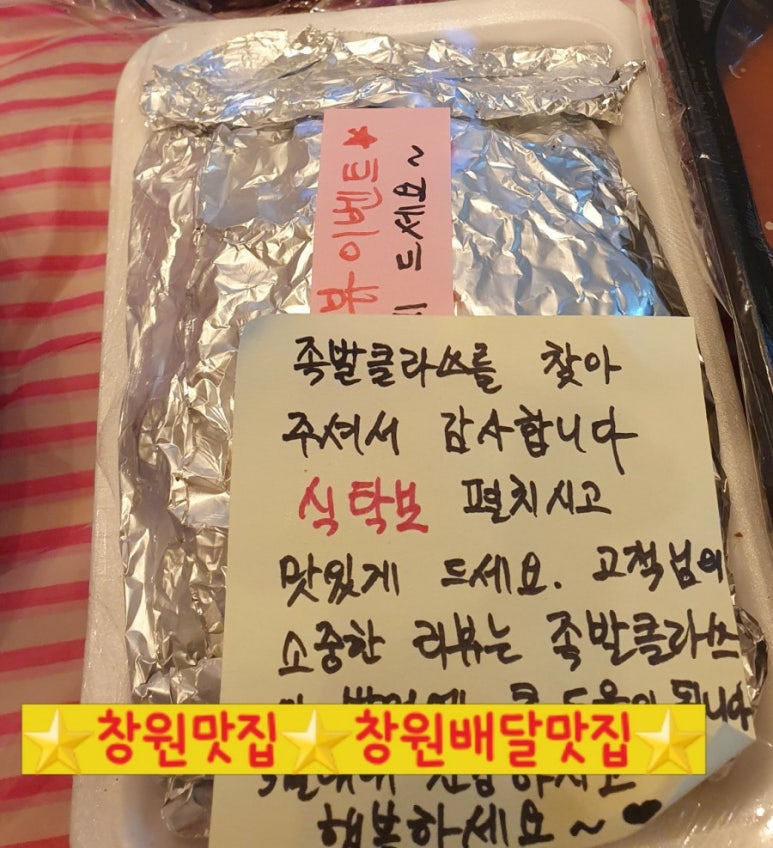 이벤트
드세요~
족발클라쓰를 찾아
주셔서 감사합니다
식탁보 펼치시고
맛있게 드세요. 고객님의
소중한 리뷰는 족발클라쓰
큰 도움이 됩니다
창원맛집 창원배달맛집
행복하세요~